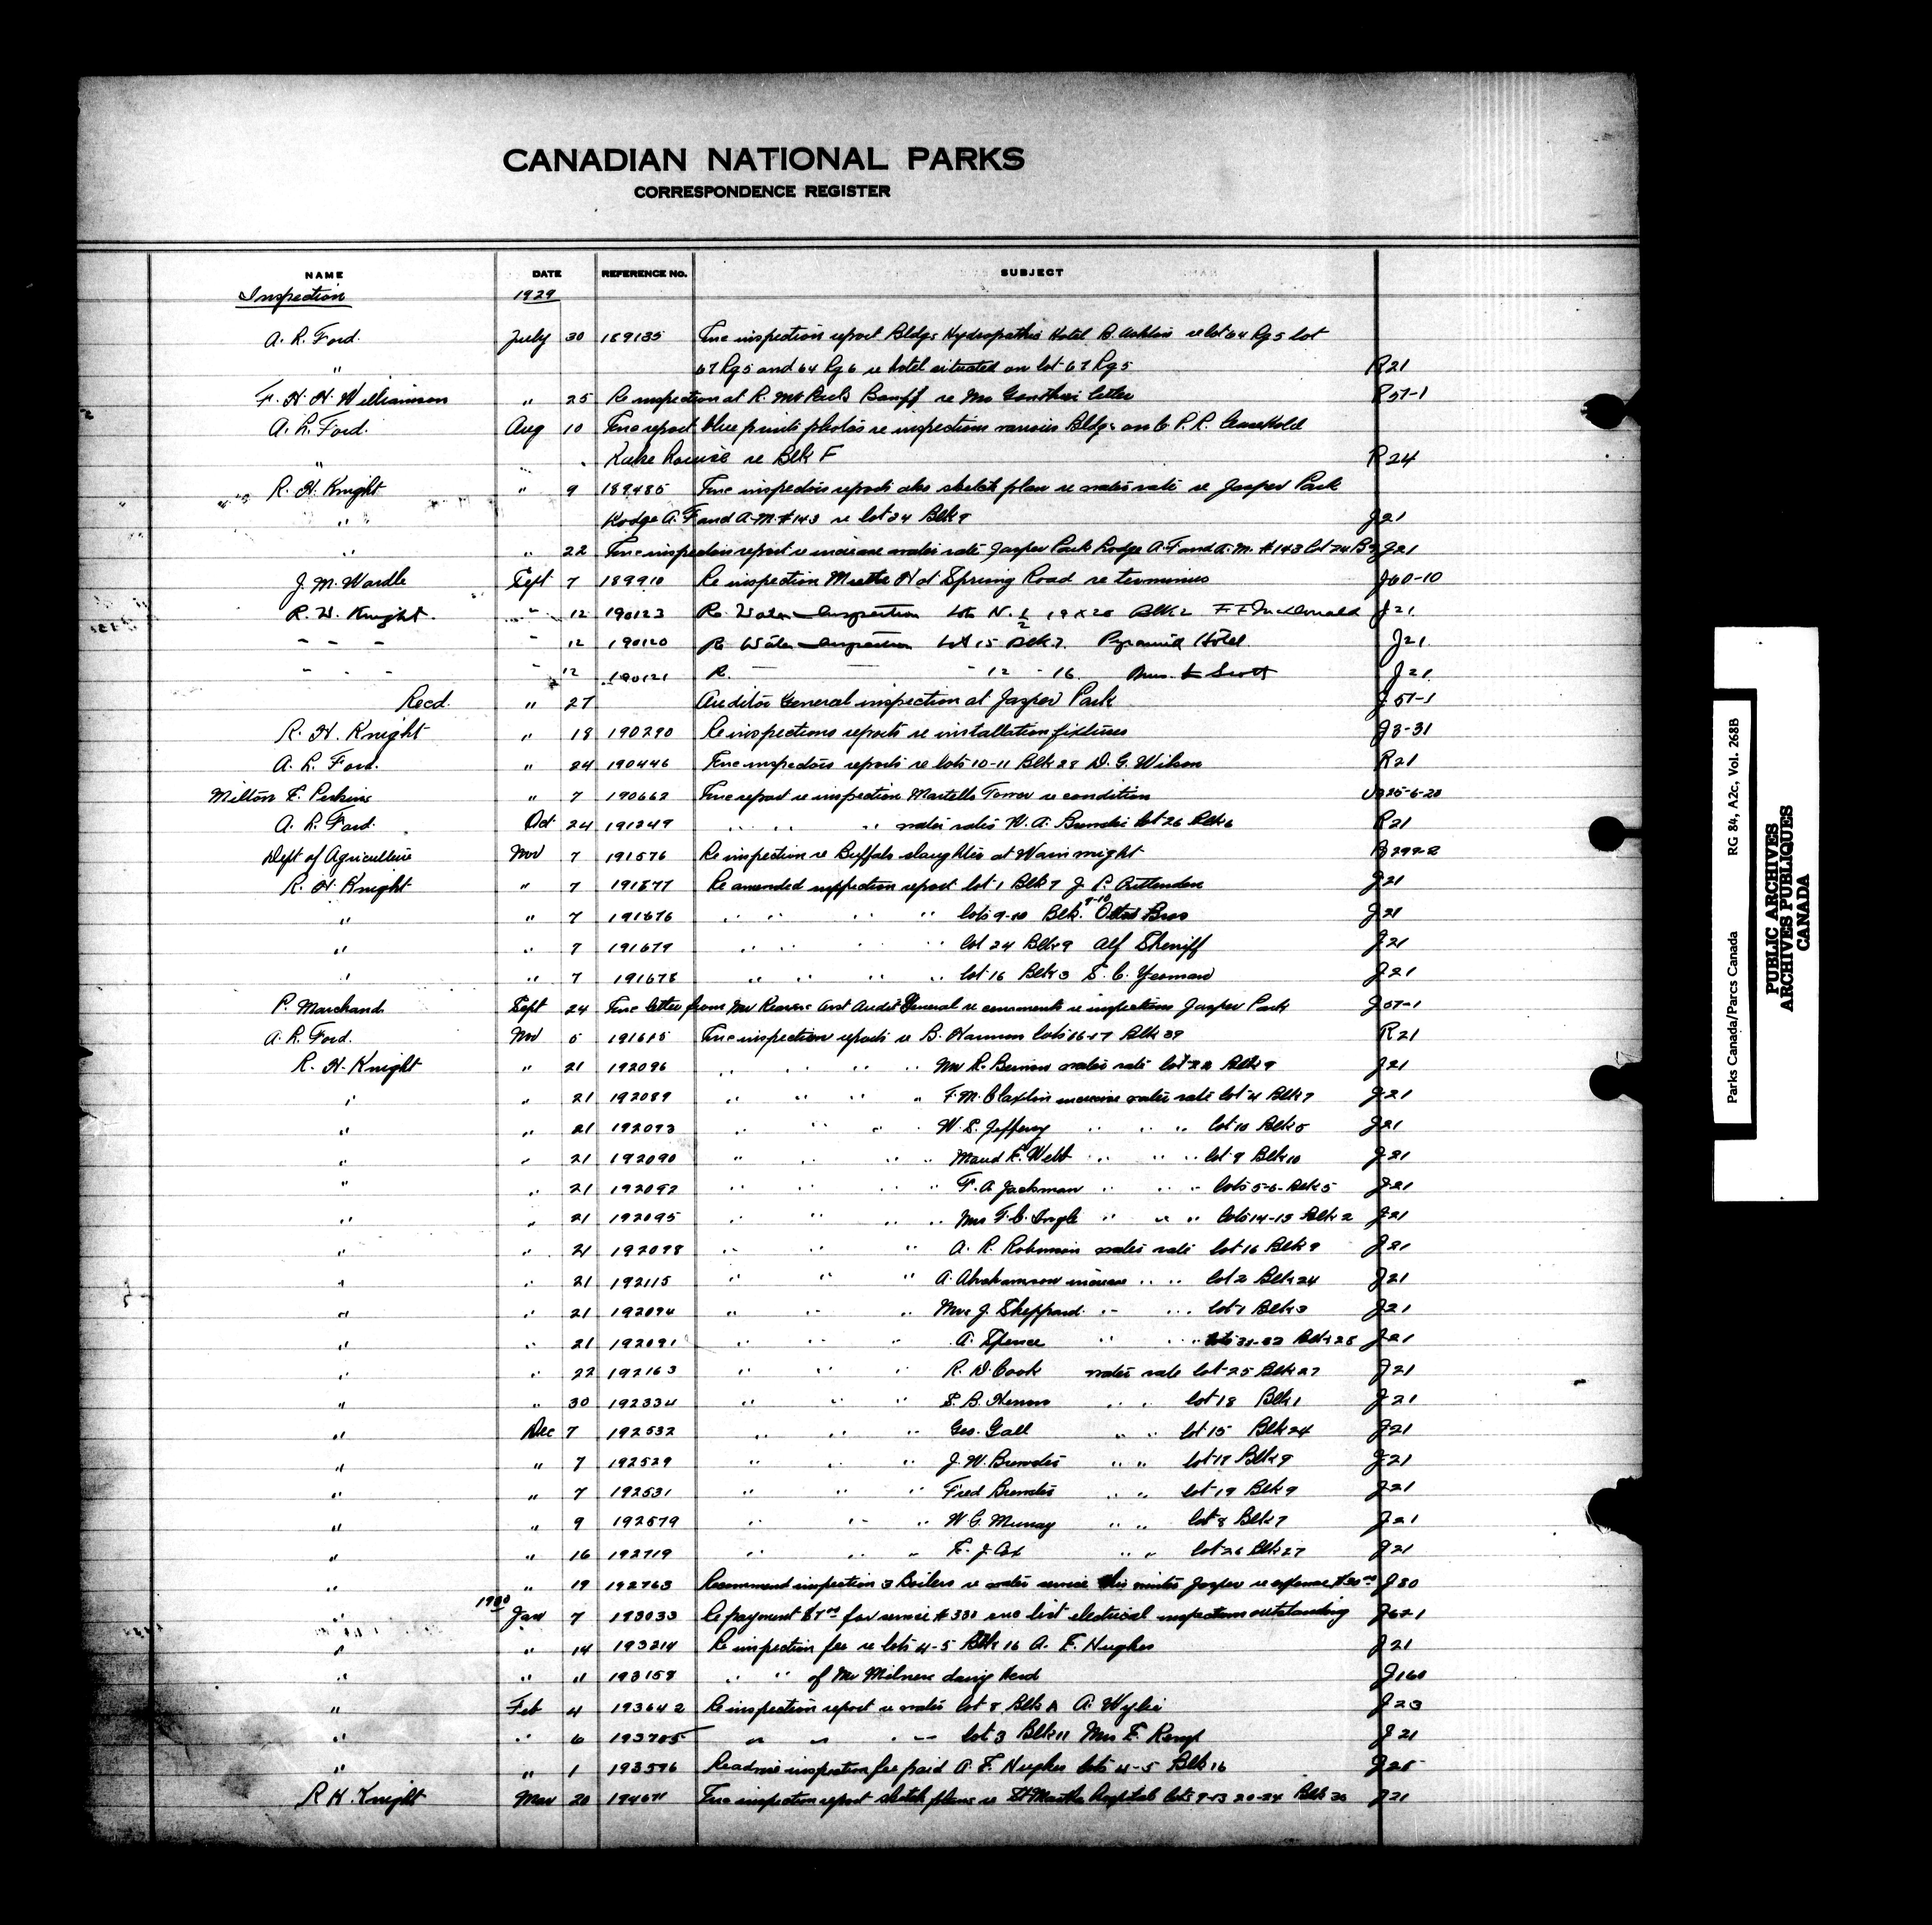 CANADIAN NATIONAL PARKS
CORRESPONDENCE REGISTER
NAME DATE REFERENCE No. SUBJECT
Inspection 1929
A. L. Ford. July 30 189135 Enc inspection report Bldgs Hydropathic Hotel B. re lot 64 Rg 5 lot
" 67 Rg 5 and 64 Rg 6 re hotel situated on lot 67 Rg 5 R21
F. H. H. Williamson " 25 Re inspection at R. Mt Park Banff re Mr letter R57-1
A. L. Ford. Aug 10 Enc report blue prints photos re inspections various Bldgs on C. P. R. leasehold
" Lake Louise re Blk F R24
R. H. Knight " 9 189485 Enc inspection reports also sketch plan re water rate re Jasper Park
" Lodge A. F and A. M. #143 re lot 24 Blk 9 J21
" " 22 Enc inspection report re increase water rate Jasper Park Lodge A. F and A. M. #143 lot 24 B 9 J21
J. M. Wardle Sept 7 189910 Re inspection Miette Hot Spring Road re terminus J60-10
R. H. Knight. " 12 190123 Re Water Inspection Lot N. 1/2 19 x 20 Blk 2 F F McDonald J21
" " " " 12 190120 Re Water Inspection Lot 15 Blk 7. Pyramid Hotel. J21.
" " " " 12 190121 R. 12 - 16. Mrs. Scott J21.
Recd. " 27 Auditor General inspection at Jasper Park J57-1
R. H. Knight " 18 190290 Re inspections reports re installation fixtures J3-31
A. L. Ford. " 24 190446 Enc inspection reports re lots 10-11 Blk 28 D. G. Wilson R21
Milton F. Perkins " 7 190662 Enc report re inspection Martello Tower re condition
A. L. Ford. Oct 24 191249 " " " water rates W. A. Brewster lot 26 Blk 6 R21
Dept of Agriculture Nov 7 191576 Re inspection re Buffalo slaughter at Wainwright B299-2
R. H. Knight " 7 191677 Re amended inspection report lot 1 Blk 7 J. P. J21
" " 7 191676 " " " " lots 9-10 Blk. 9-10 Otto Bros J21
" " 7 191679 " " " " lot 24 Blk 9 Alf Sheriff J21
" " 7 191678 " " " " lot 16 Blk 3 S. C. Yeoman J21
P. Marchand Sept 24 Enc letter from Mr Asst Audit General re comments re inspections Jasper Park J57-1
A. L. Ford. Nov 5 191615 Enc inspection reports re B. Harmon lots 16-17 Blk 39 R21
R. H. Knight " 21 192096 " " " " Mr R. water rate lot 22 Blk 9 J21
" " 21 192089 " " " F. M. Claxton increase water rate lot 4 Blk 7 J21
" " 21 192093 " " " " W. S. Jeffery " " " lot 10 Blk 5 J21
" " 21 192090 " " " " Maud E. Webb " " " lot 9 Blk 10 J21
" " 21 192092 " " " " F. A. Jackman " " " lots 5-6- Blk 5 J21
" " 21 192095 " " " " Mrs F. C. Ingle " " " lots 14-15 Blk 2 J21
" " 21 192098 " " " A. R. Robinson water rate lot 16 Blk 9 J21
" " 21 192115 " " " A. Abrahamson increase " " lot 2 Blk 24 J21
" " 21 192094 " " " Mrs J. Sheppard " " lot 1 Blk 3 J21
" " 21 192091 " " " A. Spence " " Blk 28 J21
" " 22 192163 " " " R. D. Cook water rate lot 25 Blk 27 J21
" " 30 192334 " " " S. B. " " lot 18 Blk 1 J21
" Dec 7 192532 " " " Geo. Gall " " lot 15 Blk 24 J21
" " 7 192529 " " " J. W. Brewster " " lot 17 Blk 9 J21
" " 7 192531 " " " Fred Brewster " " lot 19 Blk 9 J21
" " 9 192579 " " " W. G. Murray " " lot 8 Blk 7 J21
" " 16 192719 " " " E. J. Cox " " lot 26 Blk 27 J21
" " 19 192763 Recommend inspection 3 Boilers re water service this winter Jasper re expense $30.00 J80
" 1930 Jan 7 193033 Re payment for service # 330 enc list electrical inspections outstanding J621
" " 14 193214 Re inspection fee re lots 4-5 Blk 16 A. E. Hughes J21
" " 11 193158 " " of Mr Milners dairy herd J160
" Feb 4 193642 Re inspection report re water lot 8 Blk A A. Wylie J23
" " 6 193705 " " " lot 3 Blk 11 Mrs E. J21
" " 1 193596 Re advise inspection fee paid A. E. Hughes lots 4-5 Blk 16 J25
R H. Knight Mar 20 194671 Enc inspection report sketch plans re St Martha Hospital lots 9-13 20-24 Blk 30 J21
Parks Canada/Parcs Canada RG 84, A2c, Vol. 268B
PUBLIC ARCHIVES
ARCHIVES PUBLIQUES
CANADA